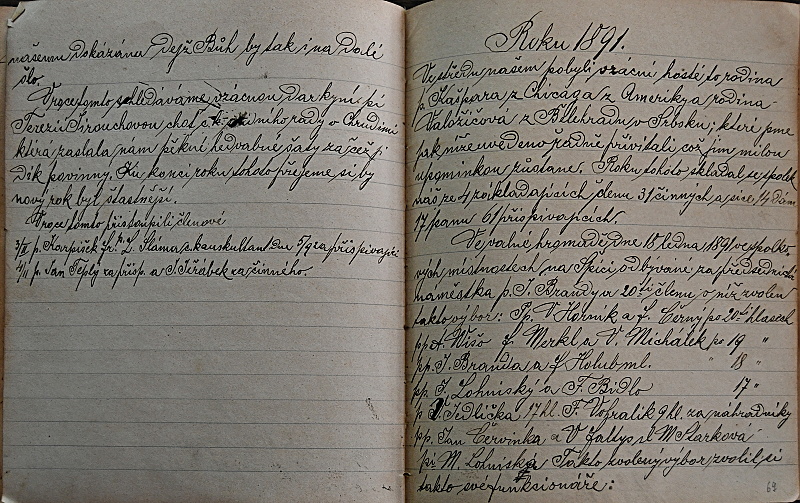 našemu dokázána dejž Bůh by tak i na dale
šlo.
V roce tomto shledáváme vzácnou dárkyni pí
Terezii Širouchovou choť c. k. ního rady v Chrudimi
která zaslala nám pěkné hedvabné šaty za což jí
dík povinny. Ku konci roku tohoto přejeme si by
nový rok byl šťastnější.
V roce tomto přistoupili členové
p. Karpíšek fr. Sláma c. k. auskultant dne 5/9 za přispívající
4/11 p. Jan Teplý za přisp. a J. Jiřábek za činného.
Roku 1891.
Ve středu našem pobyli vzácní hosté to rodina
p. Kašpara z Chicága z Ameriky a rodina
Valožícova z Bělehradu v Srbsku, které jsme
jak níže uvedeno řádně přivítali což jim milou
vspomínkou zůstane. Roku tohoto skládal se spolek
náš ze 4 zakládajících členu 31 činných a sice 14 dam
17 panu 61 přispívajících.
Ve valné hromadě dne 18 ledna 1891 ve spolko-
vých místnostech na Skřici odbyvané za předsednictví
náměstka p. J. Brandy a 20ti členu, o níž zvolen
takto výbor: Pp. V Horník a f. Černý po 20ti hlasech
pp. A. Wišo f. Merkl a V. Michálek po 19 "
pp. J. Branda a f Holub ml. " " 18 "
pp. J. Lohniský a F. Bidlo 17 "
p. Jedlička 17 hl. F. Votralik 9 hl. za náhradníky
pp. Jan Červinka a V. faltys sl M Starková
pí M. Lohniská. Takto zvolený výbor zvolil si
takto své funkcionáře:
69